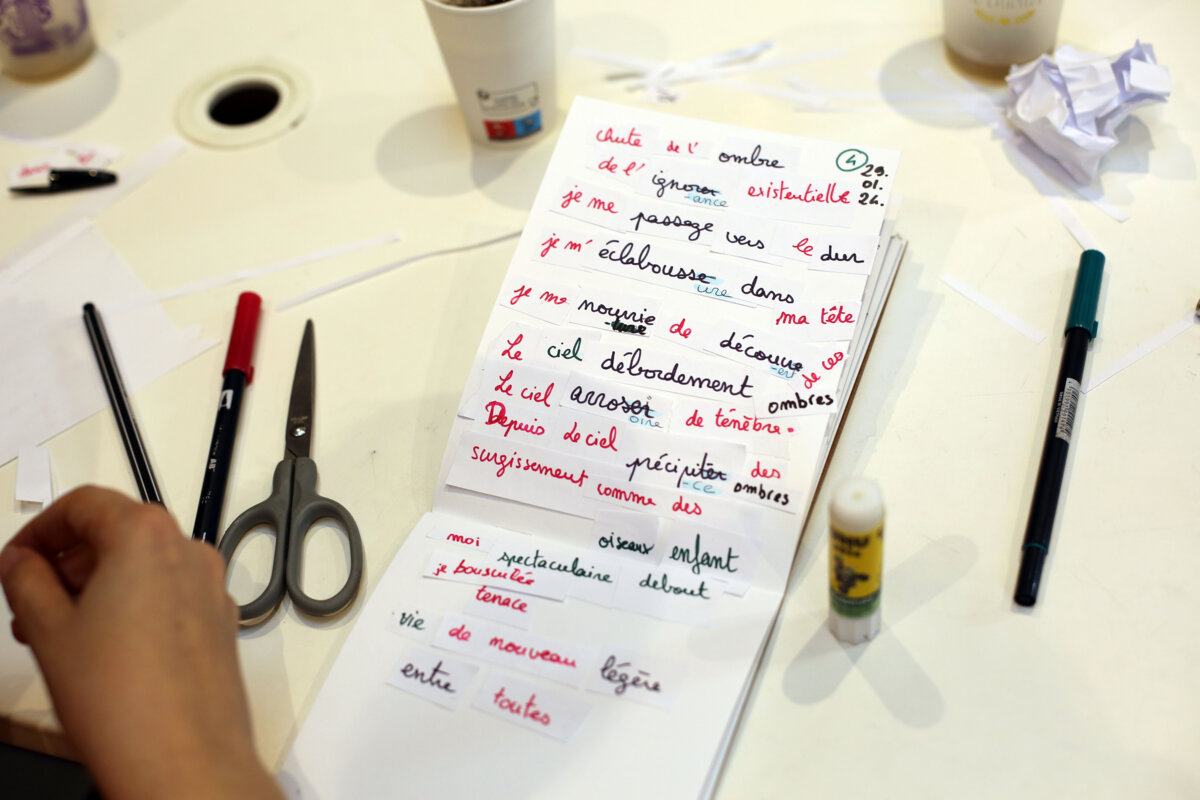 chute de l' ombre
4
29.
01.
24.
de l' ignorer -ance existentielle
je me passage vers le dur
je m' éclabousse ure dans ma tête
je me nourrie de découvre -ert de ces ombres
Le ciel débordement
Le ciel arrosoi oire de ténèbre.
Depuis le ciel précipiter -ce des ombres
surgissement comme des
oiseaux enfant
moi spectaculaire debout
je bousculée
tenace
vie de nouveau légère
entre toutes